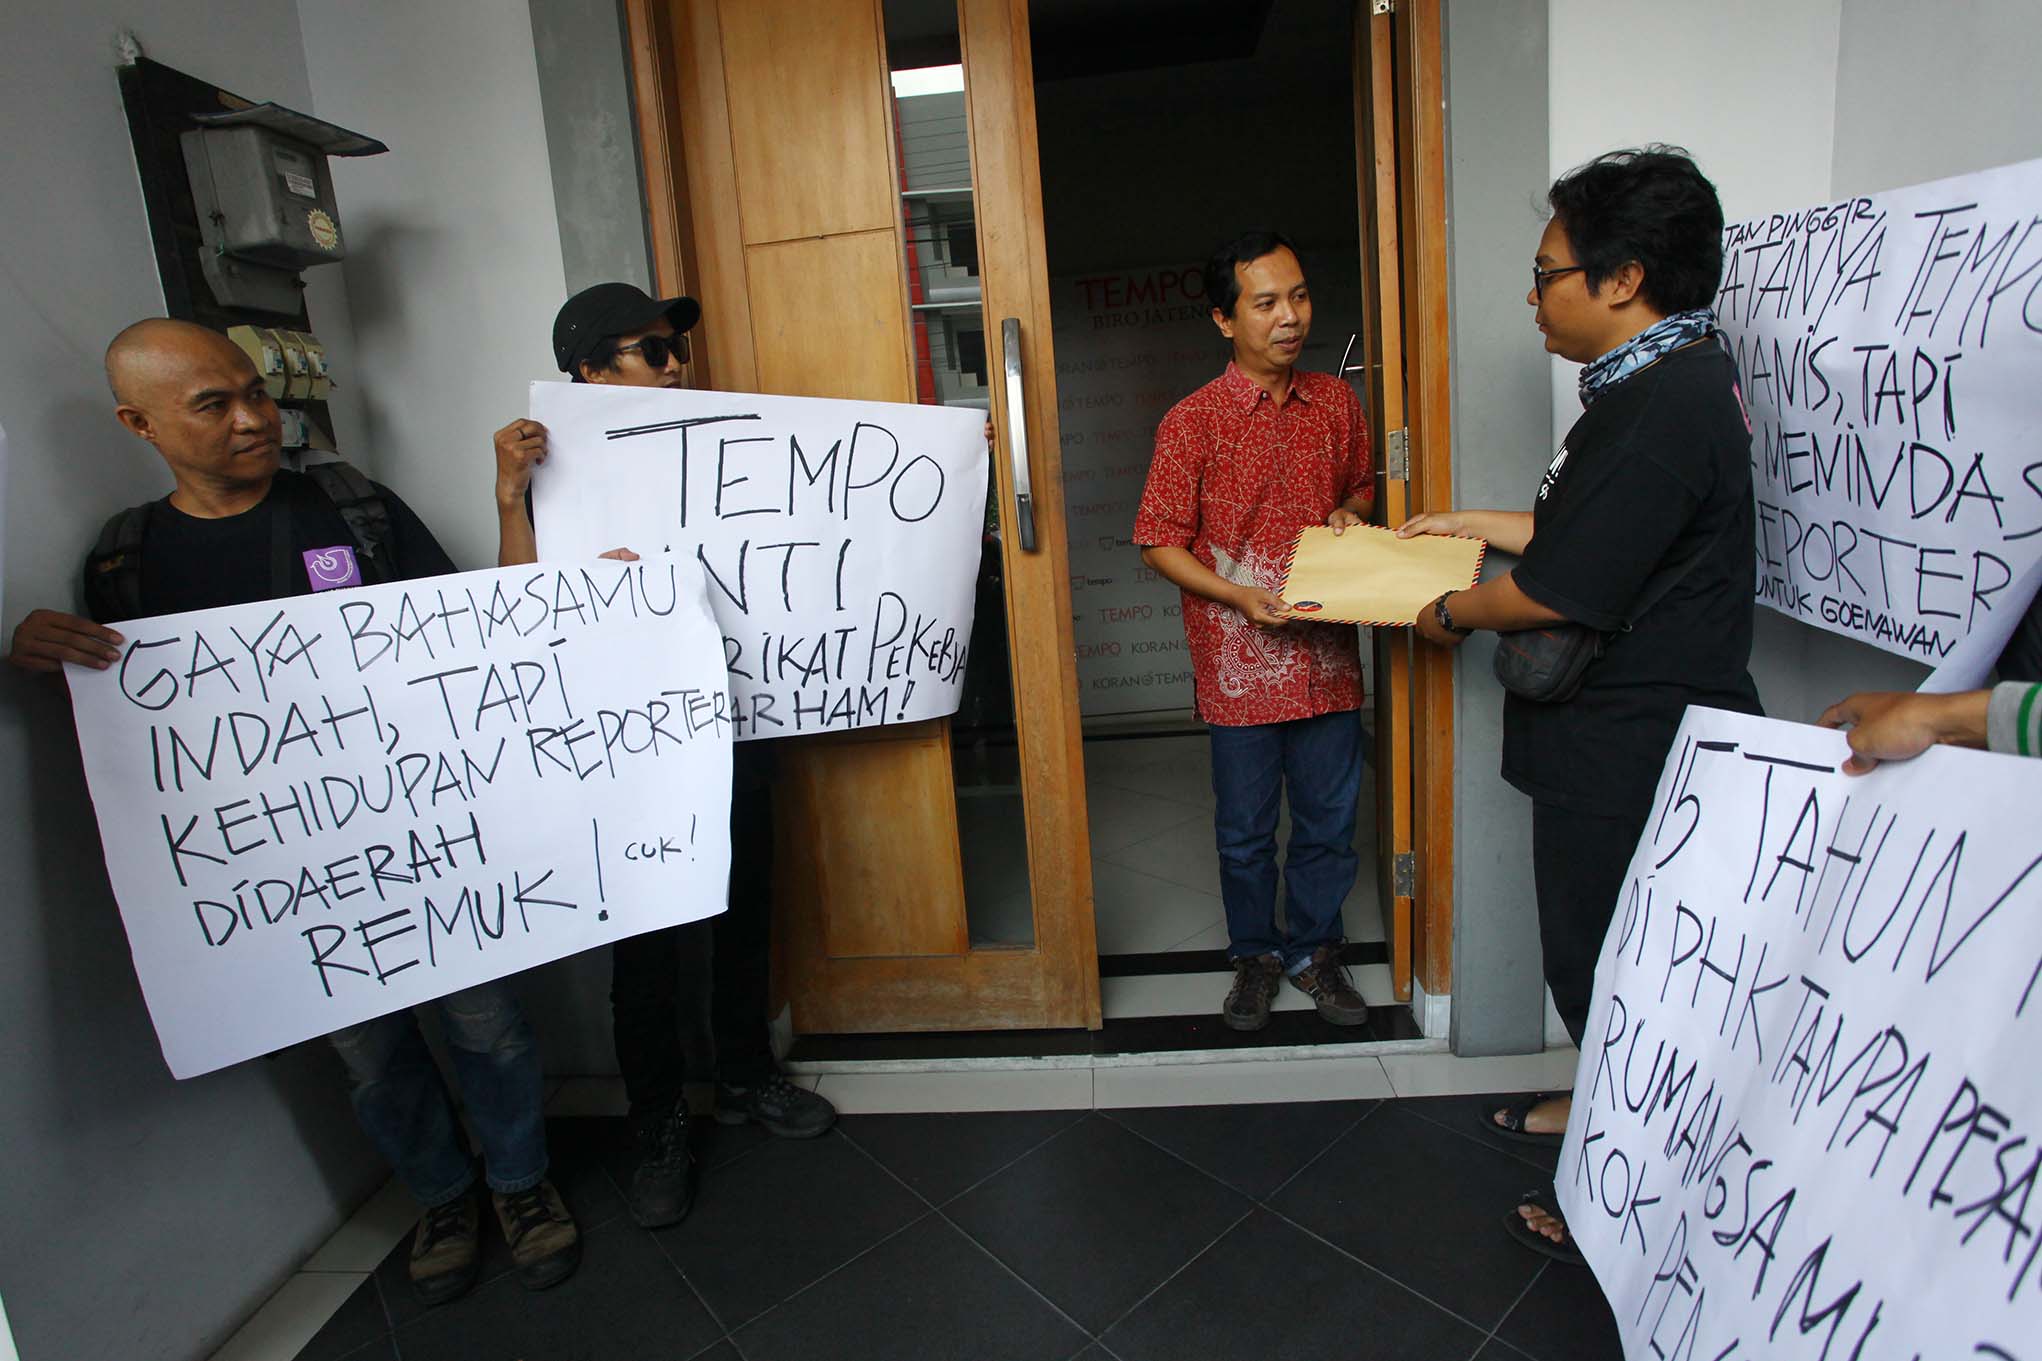 GAYA BAHASAMU
INDAH, TAPI
KEHIDUPAN REPORTER
DIDAERAH
REMUK! CUK!
TEMPO
NTI
RIKAT PEKERJA
AR HAM!
TEMPO
BIRO JATENG
KORAN TEMPO
TEMPO
TEMPO
TEMPO
TEMPO
TEMPO
tempo
TEMPO
TEMPO KORAN
TEMPO KORAN TEMPO
KORAN TEMPO
TAN PINGGIR
ATANYA TEMPO
MANIS, TAPI
MENINDAS
REPORTER
UNTUK GOENAWAN
15 TAHUN
DI PHK TANPA PESA
RUMANGSAMU
KOK PEN